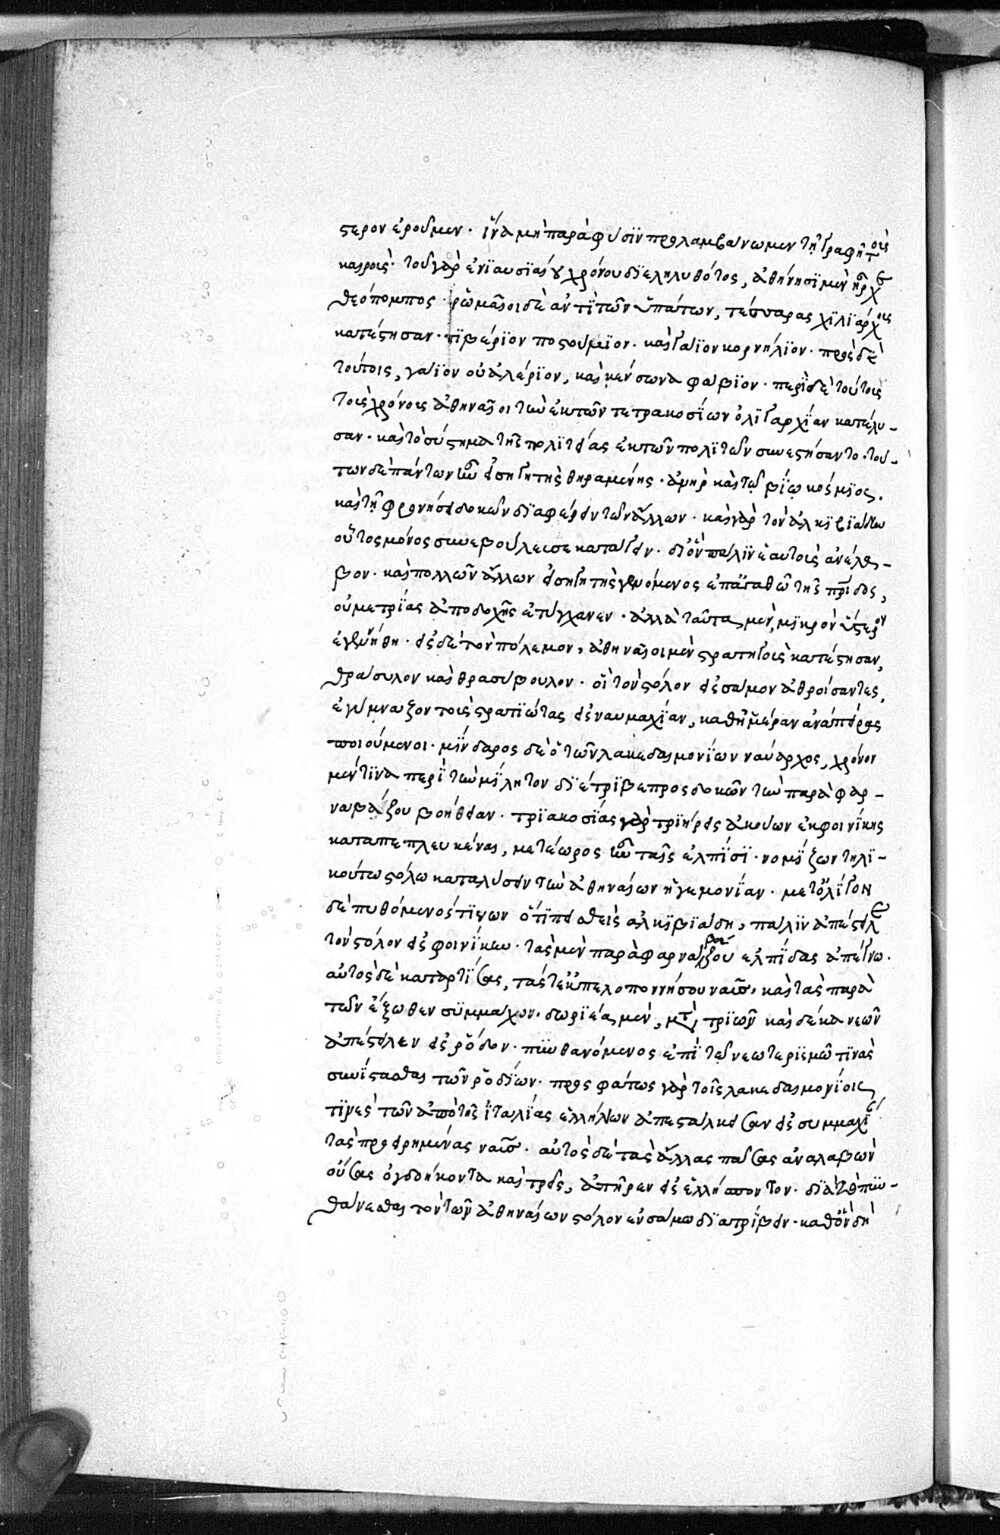 στερον ἐροῦμεν· ἵνα μὴ παρὰ φύσϊν προλαμβάνωμεν τῆ γραφῆ τοὺς
καιρούς· τοῦ γὰρ ἐνϊαυσϊαίου χρόνου δϊεληλυθότος, ἀθήνησϊ μὲν ἦρχε
θεόπομπος· ῥωμαῖοι δὲ ἀντὶ τῶν ὑπάτων, τέσσαρας χϊλϊάρχους
κατέστησαν· τϊβέρϊον ποστούμϊον· καὶ γάϊον κορνήλϊον· πρὸς δὲ
τούτοις, γάϊον οὐαλέρϊον, καὶ κένσωνα φάβϊον· περὶ δὲ τούτους
τοὺς χρόνους ἀθηναῖοι τὴν ἐκ τῶν τετρακοσΐων ὀλϊγαρχΐαν κατέλυ-
σαν· καὶ τὸ σύστημα τῆς πολϊτείας ἐκ τῶν πολϊτῶν συνεστήσαντο· τού-
των δὲ πάντων ἦν εἰσηγητὴς θηραμένης· ἀνὴρ καὶ τῶ βΐω κόσμϊος.
καὶ τῆ φρονήσει δοκῶν δϊαφέρειν τῶν ἄλλων· καὶ γὰρ τὸν ἀλκϊβϊάδην
οὗτος μόνος συνεβούλευσε κατάγειν· δϊ' ὃν πάλϊν ἑαυτοὺς ἀνέλα-
βον· καὶ πολλῶν ἄλλων εἰσηγητὴς γενόμενος ἐπ' ἀγαθῶ τῆς πατρίδος,
οὐ μετρΐας ἀποδοχῆς ἐτύγχανεν· ἀλλὰ ταῦτα μὲν, μϊκρὸν ὕστερον
ἐγενήθη· εἰς δὲ τὸν πόλεμον, ἀθηναῖοι μὲν στρατηγοὺς κατέστησαν,
θράσυλον καὶ θρασύβουλον· οἳ τὸν στόλον εἰς σάμον ἀθροίσαντες,
ἐγύμναζον τοὺς στρατϊώτας εἰς ναυμαχΐαν, καθ' ἡμέραν ἀναπείρας
ποιούμενοι· μΐνδαρος δὲ ὁ τῶν λακεδαιμονΐων ναύαρχος, χρόνον
μέν τϊνα περὶ τὴν μΐλητον δϊέτρϊβε προσδοκῶν τὴν παρὰ φαρ-
ναβάζου βοήθειαν· τρϊακοσΐας γὰρ τρϊήρεις ἀκούων ἐκ φοινΐκης
καταπεπλευκέναι, μετέωρος ἦν ταῖς ἐλπΐσϊ· νομΐζων τηλϊ-
κούτω στόλω καταλύσειν τὴν ἀθηναίων ἡγεμονΐαν· μετ' ὀλΐγον
δὲ πυθόμενος τϊνων ὅτϊ πεισθεὶς ἀλκϊβϊάδη, πάλϊν ἀπέστειλε
τὸν στόλον εἰς φοινΐκην· τὰς μὲν παρὰ φαρναβάζου ἐλπΐδας ἀπέγνω.
αὐτὸς δὲ καταρτΐσας, τάς τ' ἐκ πελοποννήσου ναῦς, καὶ τὰς παρὰ
τῶν ἔξωθεν συμμάχων· δωρϊέα μὲν, μετὰ τρϊῶν καὶ δέκα νεῶν
ἀπέστειλεν εἰς ῥόδον· πυνθανόμενος ἐπὶ τῶ νεωτερϊσμῶ τϊνὰς
συνΐστασθαι τῶν ῥοδΐων· προσφάτως γὰρ τοῖς λακεδαιμονΐοις
τϊνὲς τῶν ἀπὸ τῆς ἰταλΐας ἑλλήνων ἀπεστάλκεισαν εἰς συμμαχΐαν
τὰς προειρημένας ναῦς· αὐτὸς δὲ τὰς ἄλλας πάσας ἀναλαβὼν
οὔσας ὀγδοήκοντα καὶ τρεῖς, ἀπῆρεν εἰς ἑλλήσποντον· δϊὰ τὸ πυν-
θάνεσθαι τὸν τῶν ἀθηναίων στόλον ἐν σάμω δϊατρΐβειν· καθ' ὃν δὴ